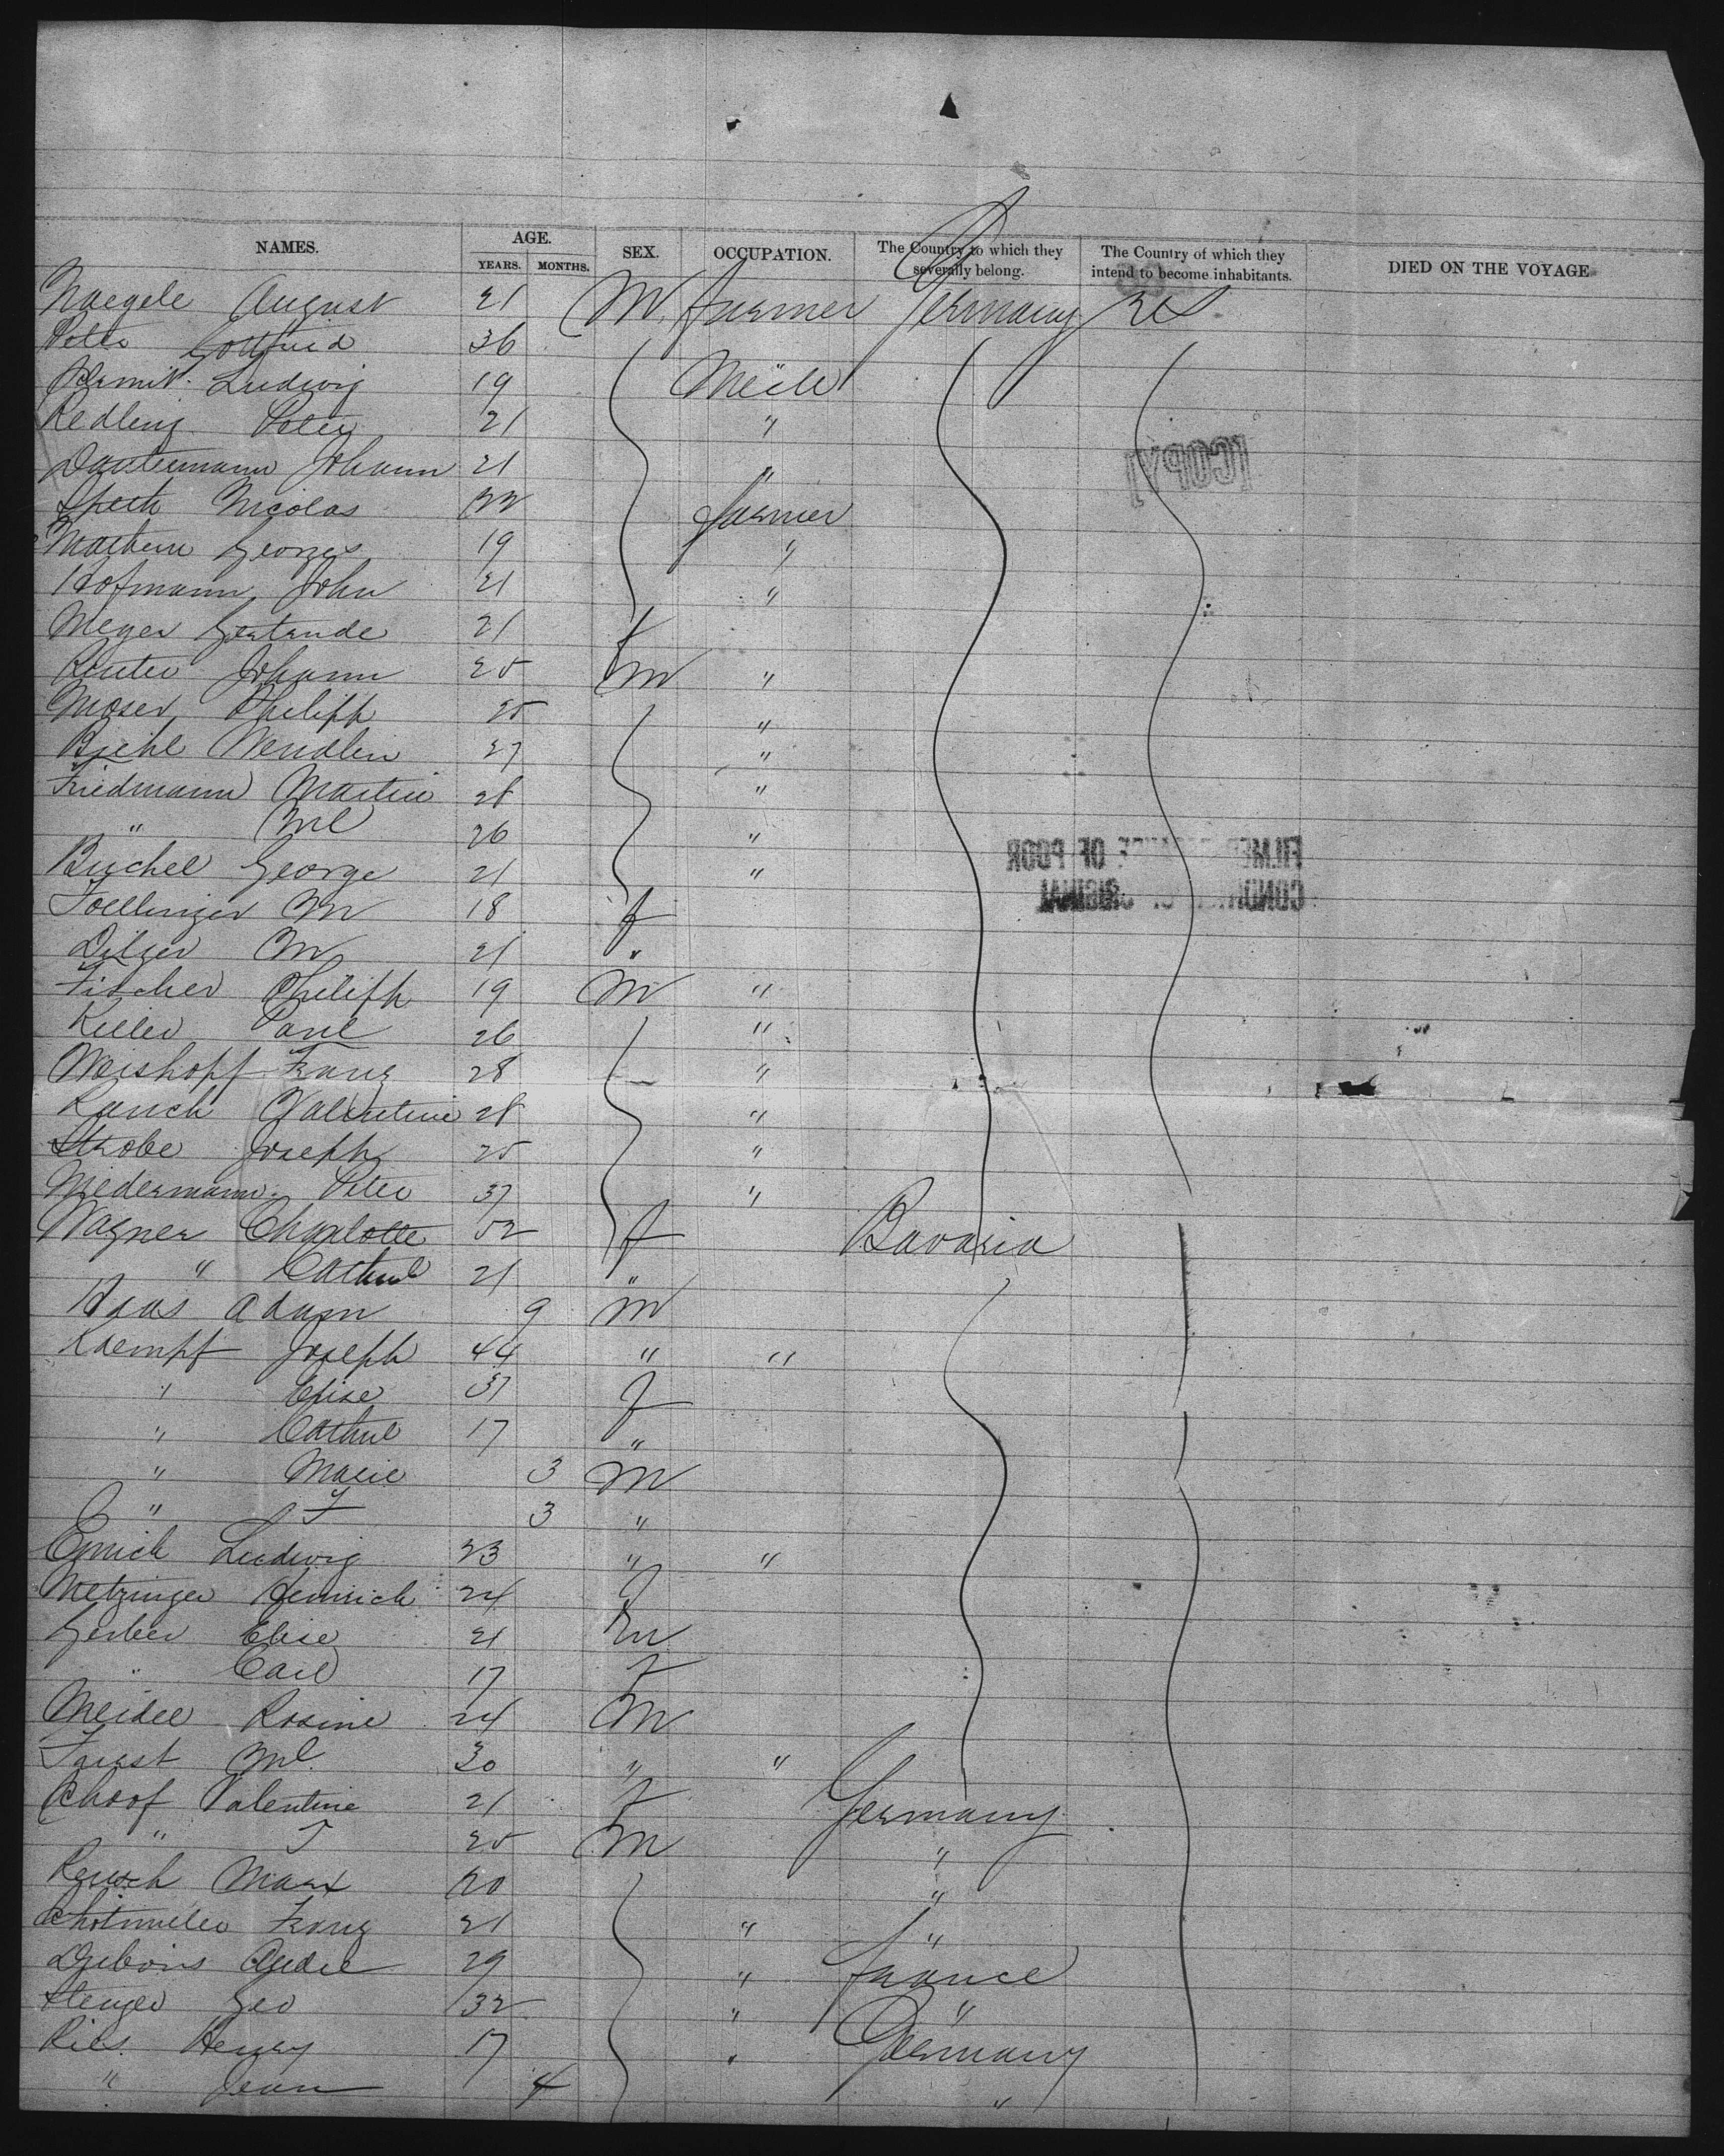 NAMES. AGE. SEX. OCCUPATION. The Country to which they severally belong. The Country of which they intend to become inhabitants. DIED ON THE VOYAGE
YEARS. MONTHS.
Naegele August 21 M Farmer Germany
Gottfried 36
Ludwig 19
Redling Peter 21 "
Dautermann Johann 21 "
Speth Nicolas 22 Farmer
Georges 19 "
Hofmann John 21 "
Meyer Gertrude 21 f
Reuter Johann 25 M "
Moser Philipp 25 "
Biehl Wendlin 27 "
Friedmann Martin 28 "
" Ml 26 "
Buchel George 21 "
Toellinger M 18 f
Dilger M 21 "
Fischer Philipp 19 M "
Keller Paul 26 "
Weishopf Franz 28 "
Rauch Valentine 28 "
Strobe Joseph 25 "
Niedermann Peter 37 "
Wagner Charlotte 52 f Bavaria
" 21 "
Haas Adam 9 M
Kaempf Joseph 44 " "
" Elise 37 f
" 17 "
" Marie 3 M
" F 3 "
Emich Ludwig 23 " "
Metzinger Heinrich 24 f
Gerber Elise 21 M
" Carl 17 f
Rosine 24 M
Faust Ml. 30 " "
Schoof Valentine 21 f Germany
" T 25 M "
Reusch Marx 20 "
Franz 21 " "
29 " France
Stenger Geo 32 " "
Ries Henry 17 " Germany
" Jean 4 "
[COPY]
FILMED OF POOR
CONDITION OF ORIGINAL